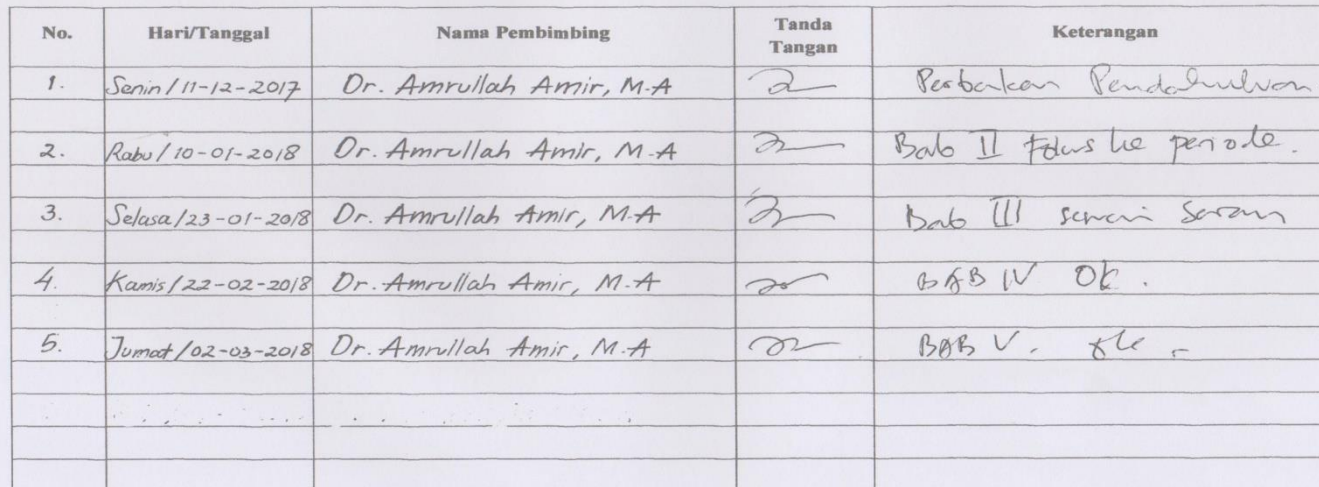 No. Hari/Tanggal Nama Pembimbing Tanda Tangan Keterangan
1. Senin/11-12-2017 Dr. Amrullah Amir, M.A Perbaikan Pendahuluan
2. Rabu/10-01-2018 Dr. Amrullah Amir, M.A Bab II Fokus ke periode.
3. Selasa/23-01-2018 Dr. Amrullah Amir, M.A Bab III sesuai Saran
4. Kamis/22-02-2018 Dr. Amrullah Amir, M.A BAB IV Ok.
5. Jumat/02-03-2018 Dr. Amrullah Amir, M.A BAB V.